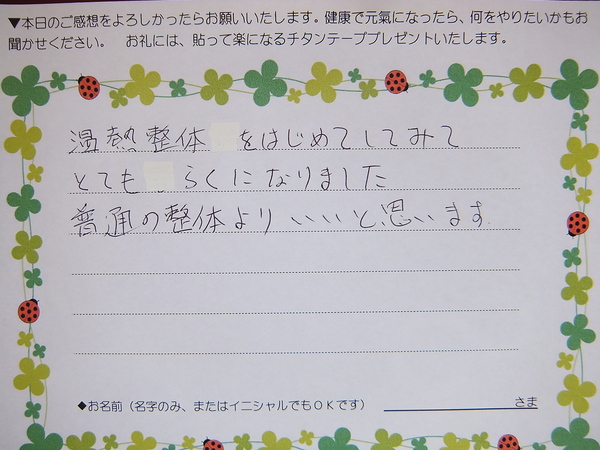 ▼本日のご感想をよろしかったらお願いいたします。健康で元氣になったら、何をやりたいかもお
聞かせください。　お礼には、貼って楽になるチタンテーププレゼントいたします。
温熱整体 をはじめてしてみて
とても らくになりました
普通の整体よりいいと思います
◆お名前（名字のみ、またはイニシャルでもＯＫです）　さま